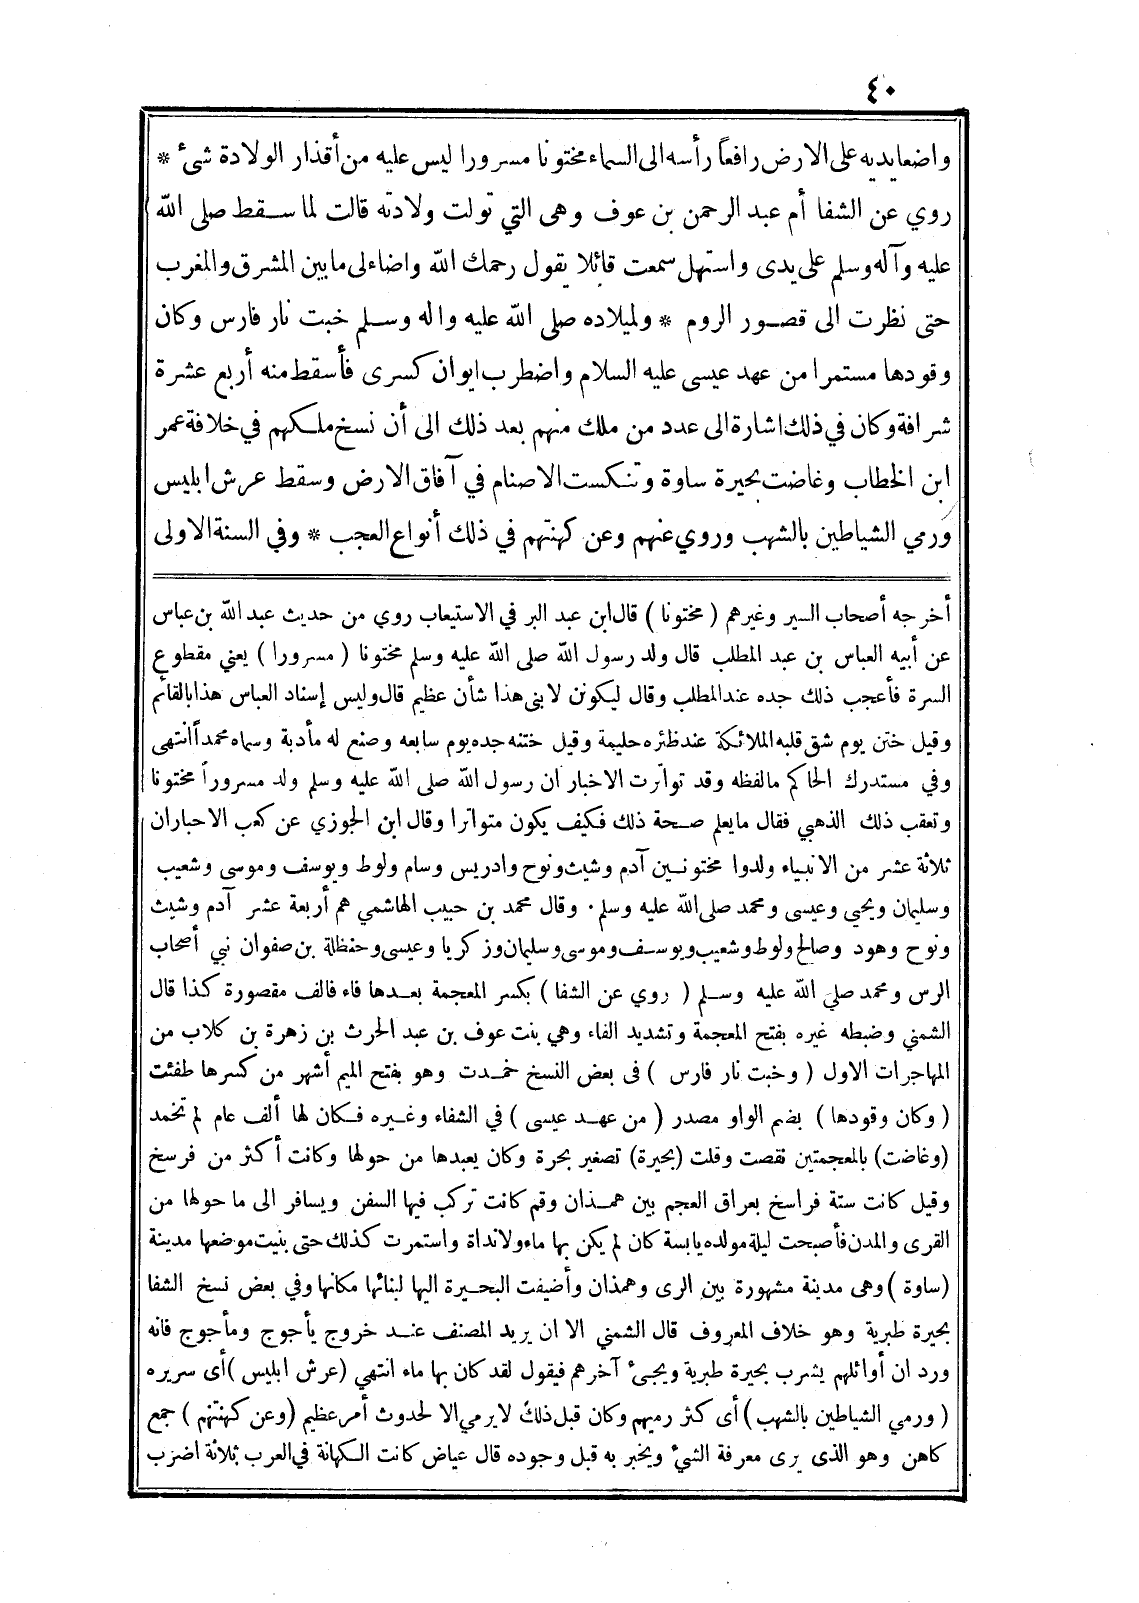 ٤٠
واضعايديه على الارض رافعاً رأسه الى السماء مختونا مسرورا ليس عليه من أقذار الولادة شئ *
روي عن الشفا أم عبد الرحمن بن عوف وهى التي تولت ولادته قالت لما سقط صلى الله
عليه وآله وسلم على يدى واستهل سمعت قائلا يقول رحمك الله واضاء لى مابين المشرق والمغرب
حتى نظرت الى قصور الروم * ولميلاده صلى الله عليه واله وسلم خبت نار فارس وكان
وقودها مستمرا من عهد عيسى عليه السلام واضطرب ايوان كسرى فأسقط منه أربع عشرة
شرافة وكان في ذلك اشارة الى عدد من ملك منهم بعد ذلك الى أن نسخ ملكهم في خلافة عمر
ابن الخطاب وغاضت بحيرة ساوة وتنكست الاصنام في آفاق الارض وسقط عرش ابليس
ورمي الشياطين بالشهب وروي عنهم وعن كهنتهم في ذلك أنواع العجب * وفي السنة الاولى
أخرجه أصحاب السير وغيرهم ( مختونا ) قال ابن عبد البر في الاستيعاب روي من حديث عبد الله بن عباس
عن أبيه العباس بن عبد المطلب قال ولد رسول الله صلى الله عليه وسلم مختونا ( مسرورا ) يعني مقطوع
السرة فأعجب ذلك جده عندالمطلب وقال ليكونن لابني هذا شأن عظيم قال وليس إسناد العباس هذا بالقائم
وقيل ختن يوم شق قلبه الملائكة عند ظئره حليمة وقيل ختنه جده يوم سابعه وصنع له مأدبة وسماه محمداً انتهى
وفي مستدرك الحاكم مالفظه وقد تواترت الاخبار ان رسول الله صلى الله عليه وسلم ولد مسروراً مختونا
وتعقب ذلك الذهبي فقال مايعلم صحة ذلك فكيف يكون متواترا وقال ابن الجوزي عن كعب الاحبار ان
ثلاثة عشر من الانبياء ولدوا مختونين آدم وشيث ونوح وادريس وسام ولوط ويوسف وموسى وشعيب
وسليمان ويحيى وعيسى ومحمد صلى الله عليه وسلم . وقال محمد بن حبيب الهاشمي هم أربعة عشر آدم وشيث
ونوح وهود وصالح ولوط وشعيب ويوسف وموسى وسليمان وزكريا وعيسى وحنظلة بن صفوان نبي أصحاب
الرس ومحمد صلى الله عليه وسلم ( روي عن الشفا ) بكسر المعجمة بعدها فاء فالف مقصورة كذا قال
الشمني وضبطه غيره بفتح المعجمة وتشديد الفاء وهي بنت عوف بن عبد الحرث بن زهرة بن كلاب من
المهاجرات الاول ( وخبت نار فارس ) فى بعض النسخ خمدت وهو بفتح الميم أشهر من كسرها طفئت
( وكان وقودها ) بضم الواو مصدر ( من عهد عيسى ) في الشفاء وغيره فكان لها ألف عام لم تخمد
(وغاضت) بالمعجمتين نقصت وقلت (بحيرة) تصغير بحرة وكان يعبدها من حولها وكانت أكثر من فرسخ
وقيل كانت ستة فراسخ بعراق العجم بين همذان وقم كانت تركب فيها السفن ويسافر الى ما حولها من
القرى والمدن فأصبحت ليلة مولده يابسة كان لم يكن بها ماء ولا نداة واستمرت كذلك حتى بنيت موضعها مدينة
(ساوة ) وهى مدينة مشهورة بين الرى وهمذان وأضيفت البحيرة اليها لبنائها مكانها وفي بعض نسخ الشفا
بحيرة طبرية وهو خلاف المعروف قال الشمني الا ان يريد المصنف عند خروج يأجوج ومأجوج فانه
ورد ان أوائلهم يشرب بحيرة طبرية ويجئ آخرهم فيقول لقد كان بها ماء انتهي (عرش ابليس ) أى سريره
( ورمي الشياطين بالشهب ) أى كثر رميهم وكان قبل ذلك لا يرمي الا لحدوث أمر عظيم (وعن كهنتهم ) جمع
كاهن وهو الذى يرى معرفة الشئ ويخبر به قبل وجوده قال عياض كانت الكهانة في العرب ثلاثة اضرب